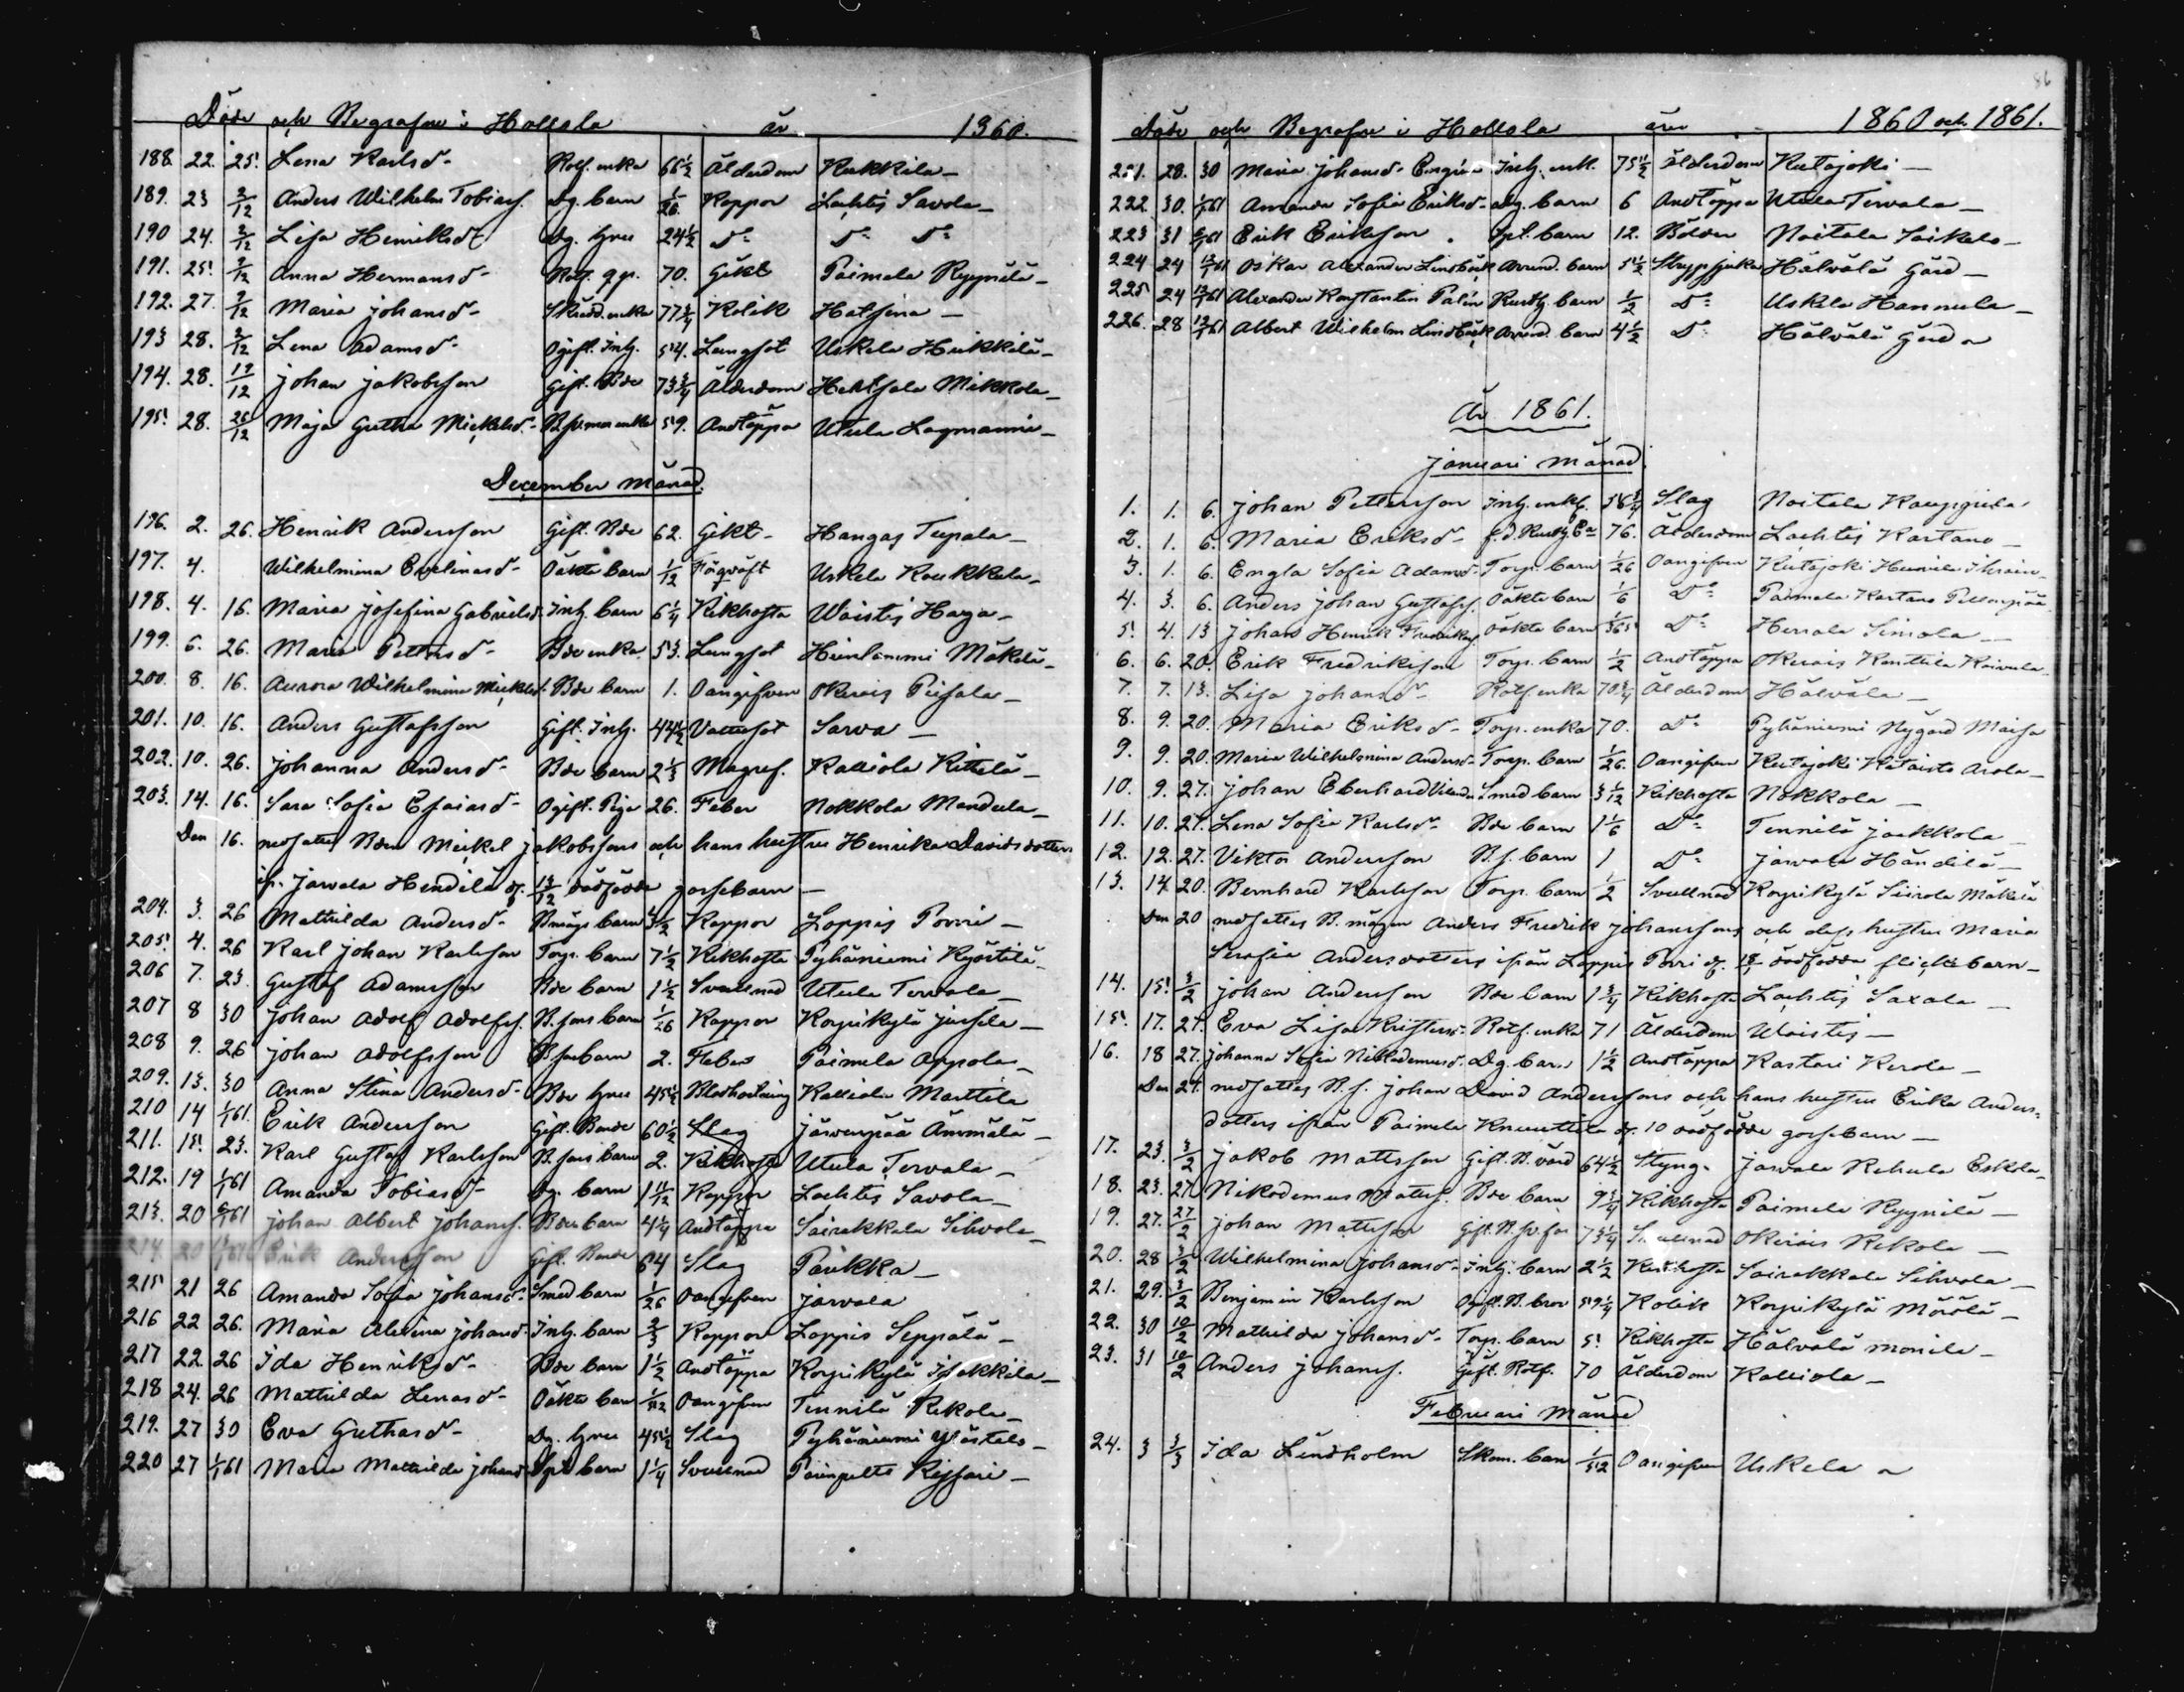 Döde och Begrafne i Hollola år 1860.
188. 22. 25. Lena Karlsd- Rotf. enka 66 1/2 Ålderdom Kukkila-
189. 23 2/12 Anders Wilhelm Tobiass. Dg. barn 1/26 Koppor Lachtis Savola-
190 24. 2/12 Lisa Henriksd- Dg. hru 24 1/2 Do Do Do
191. 25. 2/12 Anna Hermansd- 70. Gikt Paimela Ryynilä-
192. 27. 2/12 Maria Johansd- Skrädd. enka 77 3/4 Kolik Hatsina-
193 28. 2/12 Lena Adamsd- Ogift. Inh. 54. Lungsot Uskila Heikkilä-
194. 28. 19/12 Johan Jakobsson Gift. Bde 73 3/4 Ålderdom Hertsala Mikkola-
195. 28. 26/12 Maja Gretha Mickelsd- enka 59. Andtäppa Utula Lagmanni-
December månad.
196. 2. 26. Henrik Andersson Gift. Bde 62. Gikt- Hangas Tupala-
197. 4. Wilhelmina Evelinasd- Oäkta barn 1/12 Uskila Koukkula-
198. 4. 16. Maria Josefina Gabrielsd. Inh. barn 6 1/4 Kikhosta Waistis Haga-
199. 6. 26. Maria Pettersd- Bde enka 53. Lungsot Heinlammi Mäkelä-
200. 8. 16. Aurora Wilhelmina Mickelsd. Bde barn 1. Oangifven Okerois Piisala-
201. 10. 16. Anders Gustafsson Gift. Inh. 44 1/2 Vattusot Sarva-
202. 10. 26. Johanna Andersd- Bde barn 2 1/3 Magref. Kalliola Kittelä-
203. 14. 16. Sara Sofia Esaiasd- Ogift. Piga 26. Feber Nokkola Mandula-
Den 16. nedsattes Bden Mickel Jakobssons och hans hustru Henrika Davidsdotters
ifr. Jarvala Hendilä d. 13/12 dödfödde gossebarn-
204. 3. 26 Mathilda Andersd- Bmågs barn 3 1/2 Koppor Loppis Porri-
205. 4. 26 Karl Johan Karlsson Torp. barn 7 1/2 Kikhosta Pyhäniemi Kyöstilä-
206 7. 23. Gustaf Adamsson Bde barn 1 1/2 Svullnad Utula Tervala-
207 8 30 Johan Adolf Adolfss. B. sons barn 1/26 Koppor Korpikylä Jussila-
208 9. 26 Johan Adolfsson B. sons barn 2. Feber Paimela Appola-
209. 13. 30 Anna Stina Andersd- Bde hru 45 1/2 Blodhostning Kalliola Marttila
210 14 1/1 61. Erik Andersson Gift. Bonde 60 1/2 Slag Järvenpää Ämmälä-
211. 15. 23. Karl Gustaf Karlsson B. sons barn 2. Kikhosta Utula Tervala-
212. 19 1/1 61 Amanda Tobiasd- Dg. barn 1 11/12 Koppor Lachtis Savola-
213. 20 6/1 61 Johan Albert Johanss. Bde barn 4 1/4 Andtäppa Sairakkala Sihvola-
214. 20 Erik Andersson Gift. Bonde 64 Slag Paukka-
215 21 26 Amanda Sofia Johansd- Smed barn 1/26 Oangifven Jarvala
216 22 26. Maria Johansd. Inh. barn 2/3 Koppor Loppis Seppälä-
217 22. 26 Ida Henriksd- Bde barn 1 1/2 Andtäppa Korpikylä Isakkila-
218 24. 26 Mathilda Lenasd- Oäkta barn 1/52 Oangifven Tennilä Rekola-
219. 27 30 Eva Grethasd- Dg. hru 45 1/2 Slag Pyhäniemi
220 27 1/1 61 Maria Mathilda Johansd barn 1 1/4 Svullnad Parinpelto Kissari-
86
Döde och Begrafne i Hollola åren 1860 och 1861.
221. 28. 30 Maria Johansd. Inh. enk. 75 1/2 Ålderdom Kutajoki-
222. 30. 1/1 61 Amanda Sofia Eriksd- Dg. barn 6 Andtäppa Utula Tervala-
223 31 6/1 61 Erik Eriksson barn 12. Bölder Noitala Saikala-
224 24 13/1 61 Oskar Alexander Lindbäck Arrend. barn 5 1/2 Strypsjuka Hälvälä Gård-
225 24 13/1 61 Alexander Konstantin Palén Rusth. barn 1/2 Do Uskila Hannula-
226. 28 13/1 61 Albert Wilhelm Lindbäck Arrend. barn 4 1/2 Do Hälvälä Gård
År 1861.
Januari månad.
1. 1. 6. Johan Pettersson Inh. enkl. 56 3/4 Slag Noitala Kauppila
2. 1. 6. Maria Eriksd- f.d. Rusth. Ea 76. Ålderdom Lachtis Kartano-
3. 1. 6. Engla Sofia Adamsd- Torp. barn 1/26 Oangifven Kutajoki
4. 3. 6. Anders Johan Gustafss. Oäkta barn 1/6 Do Paimela Kartano
5. 4. 13 Johan Henrik Fredrikss. Oäkta barn 1/365 Do Herrala Simola-
6. 6. 20. Erik Fredriksson Torp. barn 1/2 Andtäppa Okerois Knuttila Koivula
7. 7. 13. Lisa Johansd- Rotf. enka 70 3/4 Ålderdom Hälvälä-
8. 9. 20. Maria Eriksd- Torp. enka 70. Do Pyhäniemi Nygård Maisa
9. 9. 20. Maria Wilhelmina Andersd- Torp. barn 1/26. Oangifven Kutajoki Kataisto Arola-
10. 9. 27. Johan Eberhard Smed barn 3 1/12 Kikhosta Nokkola-
11. 10. 27. Lena Sofia Karlsd- Bde barn 1 1/6 Do Tennilä Jaakkola-
12. 12. 27. Viktor Andersson B. s. barn 1 Do Jarvala Händilä-
13. 14. 20. Bernhard Karlsson Torp. barn 1/2 Svullnad Korpikylä Siirola Mäkelä
Den 20 nedsattes B. mågen Anders Fredrik Johanssons och dess hustru Maria
Serafia Andersdotters ifrån Loppis Porri d. 13 dödfödda flickebarn-
14. 15. 3/2 Johan Andersson Bde barn 1 3/4 Kikhosta Lachtis Saxala-
15. 17. 27. Eva Lisa Kristersd- Rotf. enka 71 Ålderdom Waistis-
16. 18 27. Johanna Sofia Nikodemusd. Dg. barn 1 1/2 Andtäppa Kastari Kerola-
Den 27. nedsattes B. s. Johan David Anderssons och hans hustru Erika Anders=
dotters ifrån Paimela Knuuttila d. 10 dödfödde gossebarn-
17. 23. 3/2 Jakob Mattsson Gift. B. värd 64 1/2 Styng. Jarvala Rehula Eskola
18. 23. 27. Nikodemus Bde barn 9 3/4 Kikhosta Paimela Ryynilä-
19. 27. 27/2 Johan Mattsson Gift. 73 1/4 Svullnad Okerois Rekola-
20. 28 3/2 Wilhelmina Johansd- Inh. barn 2 1/2 Kikhosta Sairakkala Sihvola-
21. 29. 3/2 Benjamin Karlsson Ogift. B. bror 59 1/4 Kolik Korpikylä Mörölä-
22. 30 10/2 Mathilda Johansd- Torp. barn 5. Kikhosta Hälvälä Monila-
23. 31 10/2 Anders Johanss. Gift. Rotf. 70 Ålderdom Kalliola-
Februari Månad
24. 3 3/3 Ida Lindholm Skom. barn 1/52 Oangifven Uskila